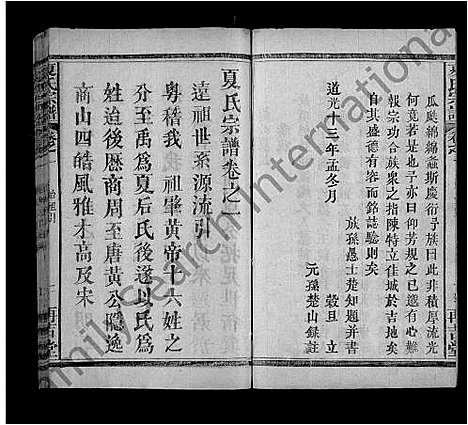 瓜瓞綿綿螽斯慶衍子族曰此非積厚流光
何竟若是也予亦曰仰芳規之已遠有心
報宗功合族衆之指陳特立佳城於吉地矣
其由盛德有容而銘誌驗則矣
道光十三年孟冬月 穀旦立
族孫愚士楚知題并書
元孫楚山録註
夏氏宗譜卷之一
遠祖世系源流引
粤稽我 祖肇黄帝十六姓之
分至禹爲夏后氏後遂以氏爲
姓迫後歴商周至唐黄公隐逸
商山四皓風雅木高及宋 明
夏氏宗譜